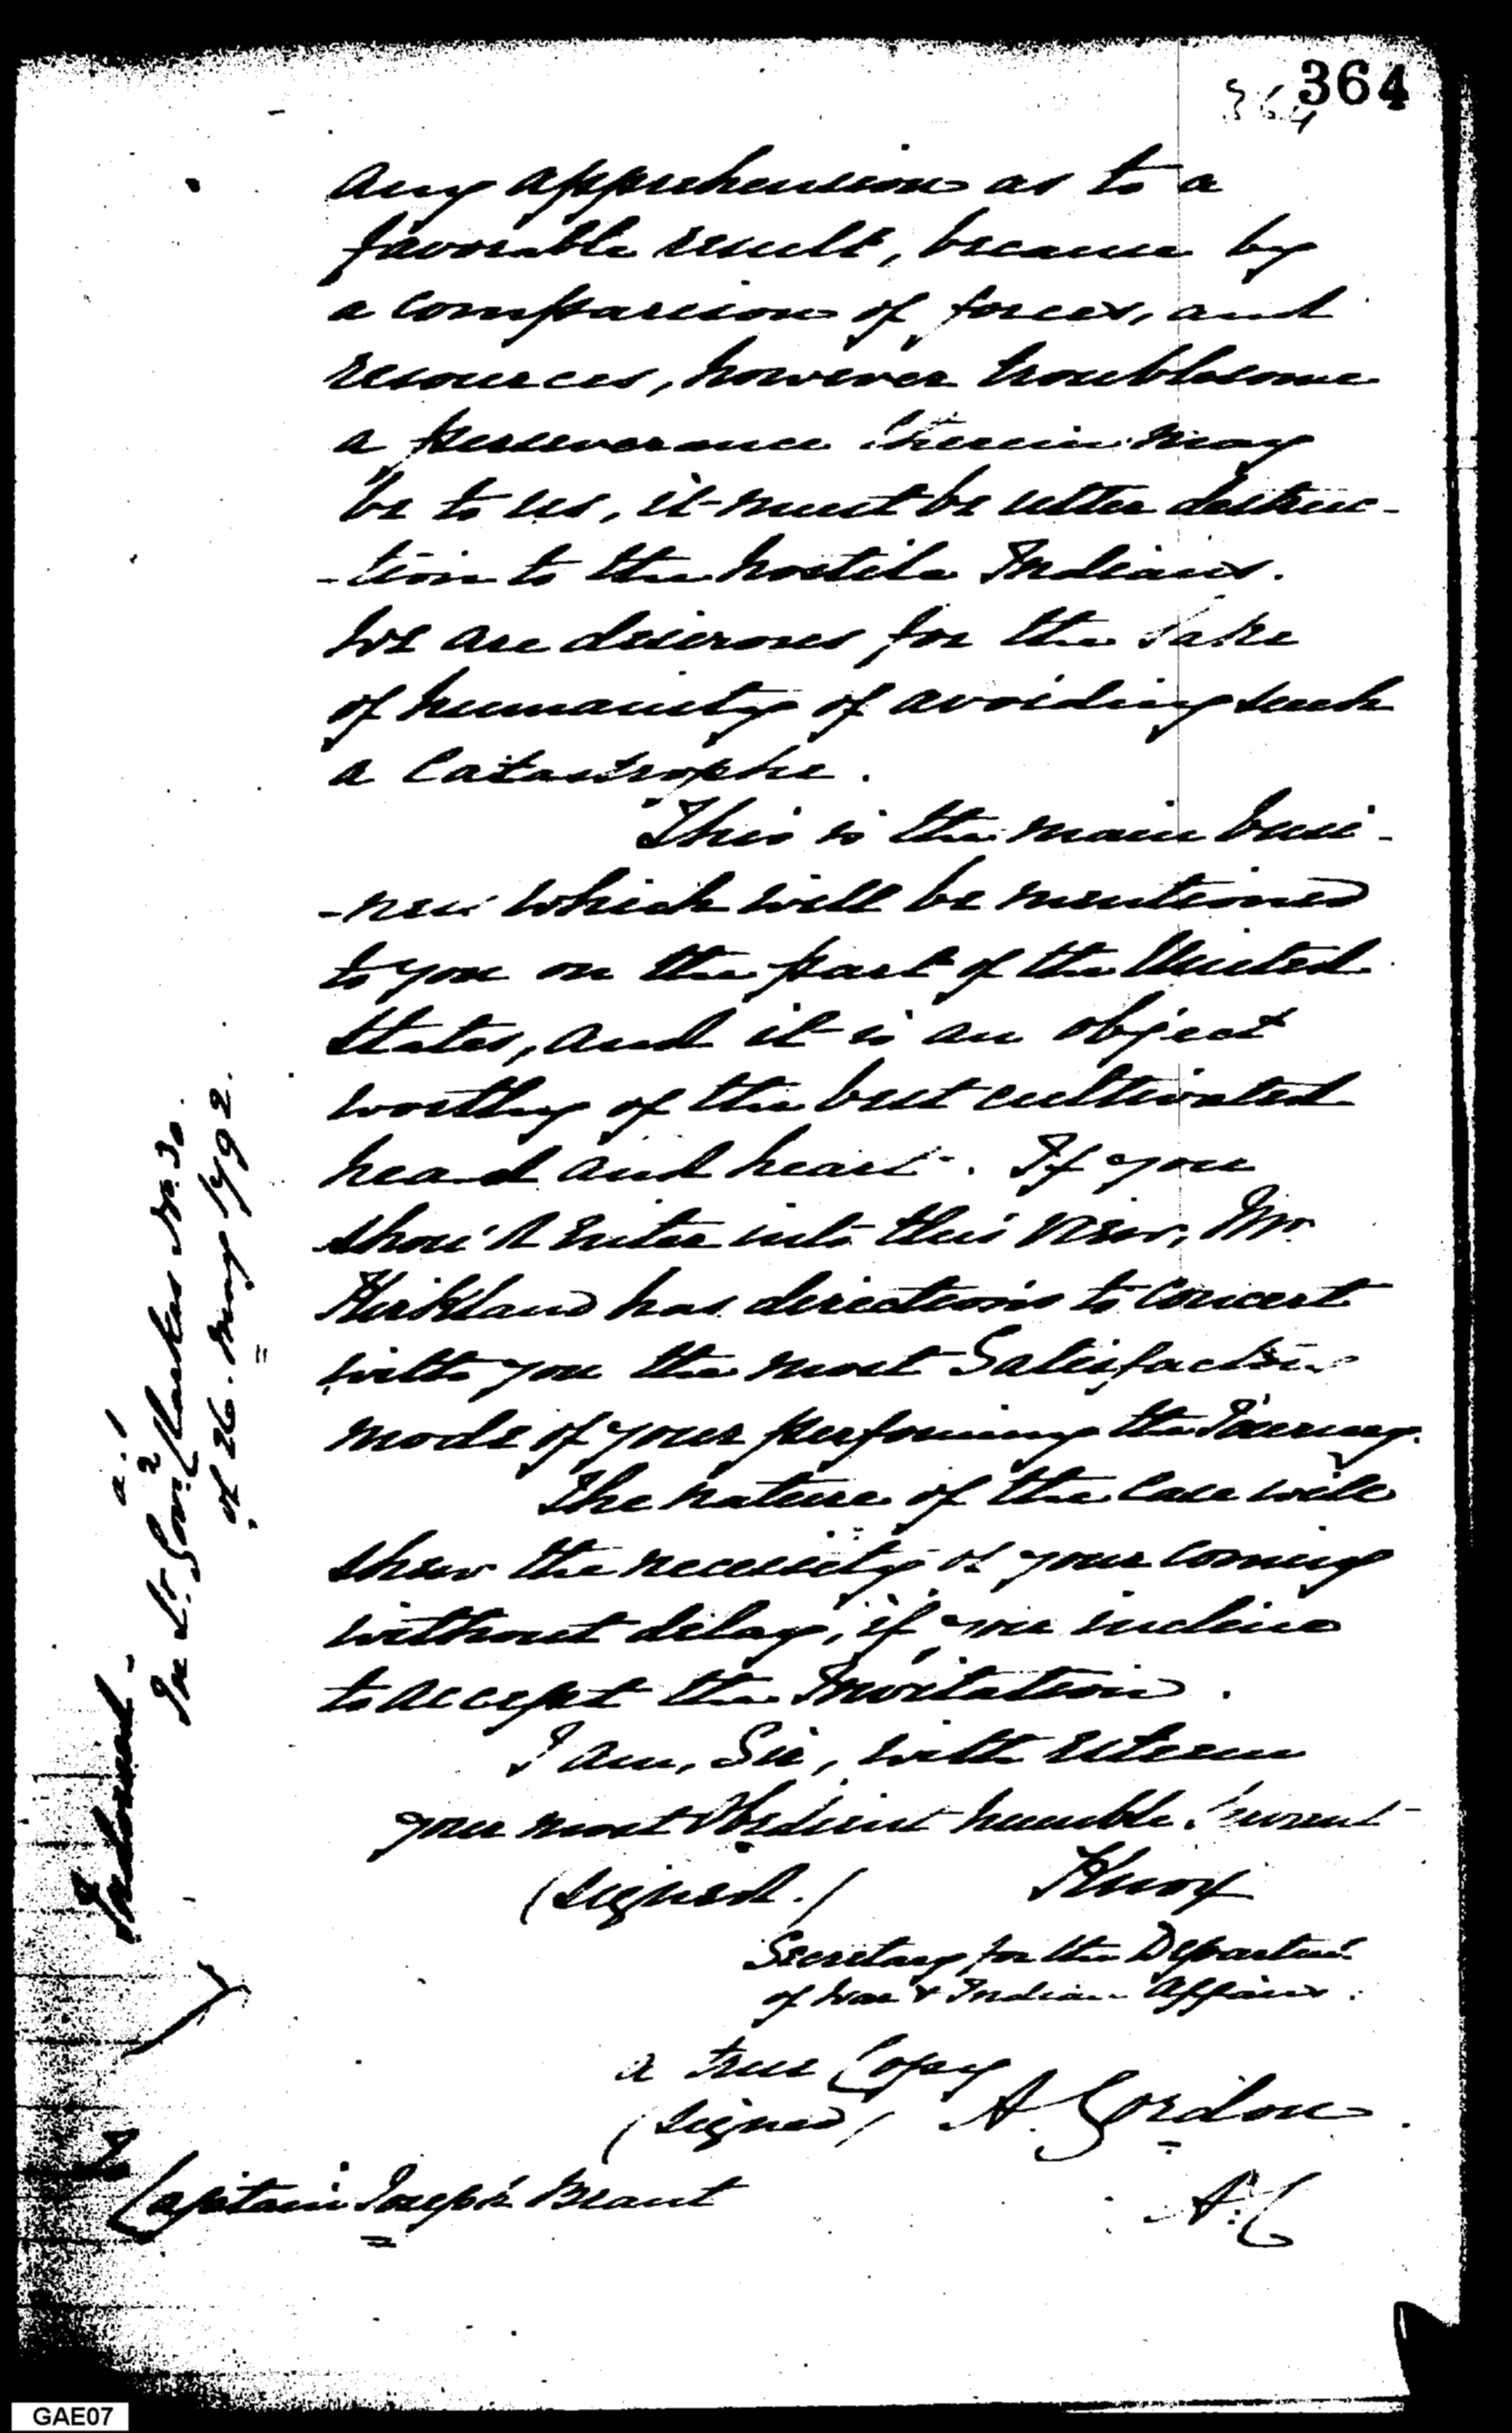 364
364
any apprehension as to a
favorable result, because by
a comparison of forces, and
resources, however troublesome
a perseverance therein may
be to us, it must be utter destruc-
-tion to the hostile Indians.
We are desirous for the sake
of humanity of avoiding such
a Catastrophe.
This is the main busi-
-ness which will be mentioned
to you on the part of the United
States, and it is an object
worthy of the best cultivated
head and heart. If you
shou'd enter into this view, Mr.
Kirkland has directions to concert
with you the most Satisfactory
mode of your performing the Journey.
The nature of the Case will
shew the necessity of your coming
without delay, if you incline
to accept the Invitation.
I am, Sir, with esteem
your most Obedient humble Servant
(signed.) HKnox
Secretary for the Departmt.
of War & Indian Affairs.
a true Copy
(signed) A. Gordon
A.C
To
Captain Joseph Brant
In Lt. Govr. Clarkes No. 30.
of 26. May 1792.
GAE07